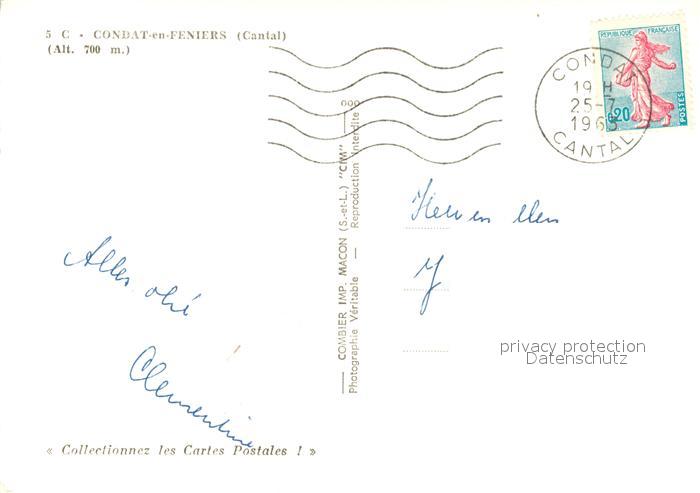 5 C - CONDAT-en-FENIERS (Cantal)
(Alt. 700 m.)
REPUBLIQUE FRANÇAISE
0,20
POSTES
CONDAT
19 H
25-7
1963
CANTAL
COMBIER IMP. MACON (S.-et-L.) "CIM"
Photographie Véritable — Reproduction Interdite
Alles
Clementine
privacy protection
Datenschutz
« Collectionnez les Cartes Postales ! »